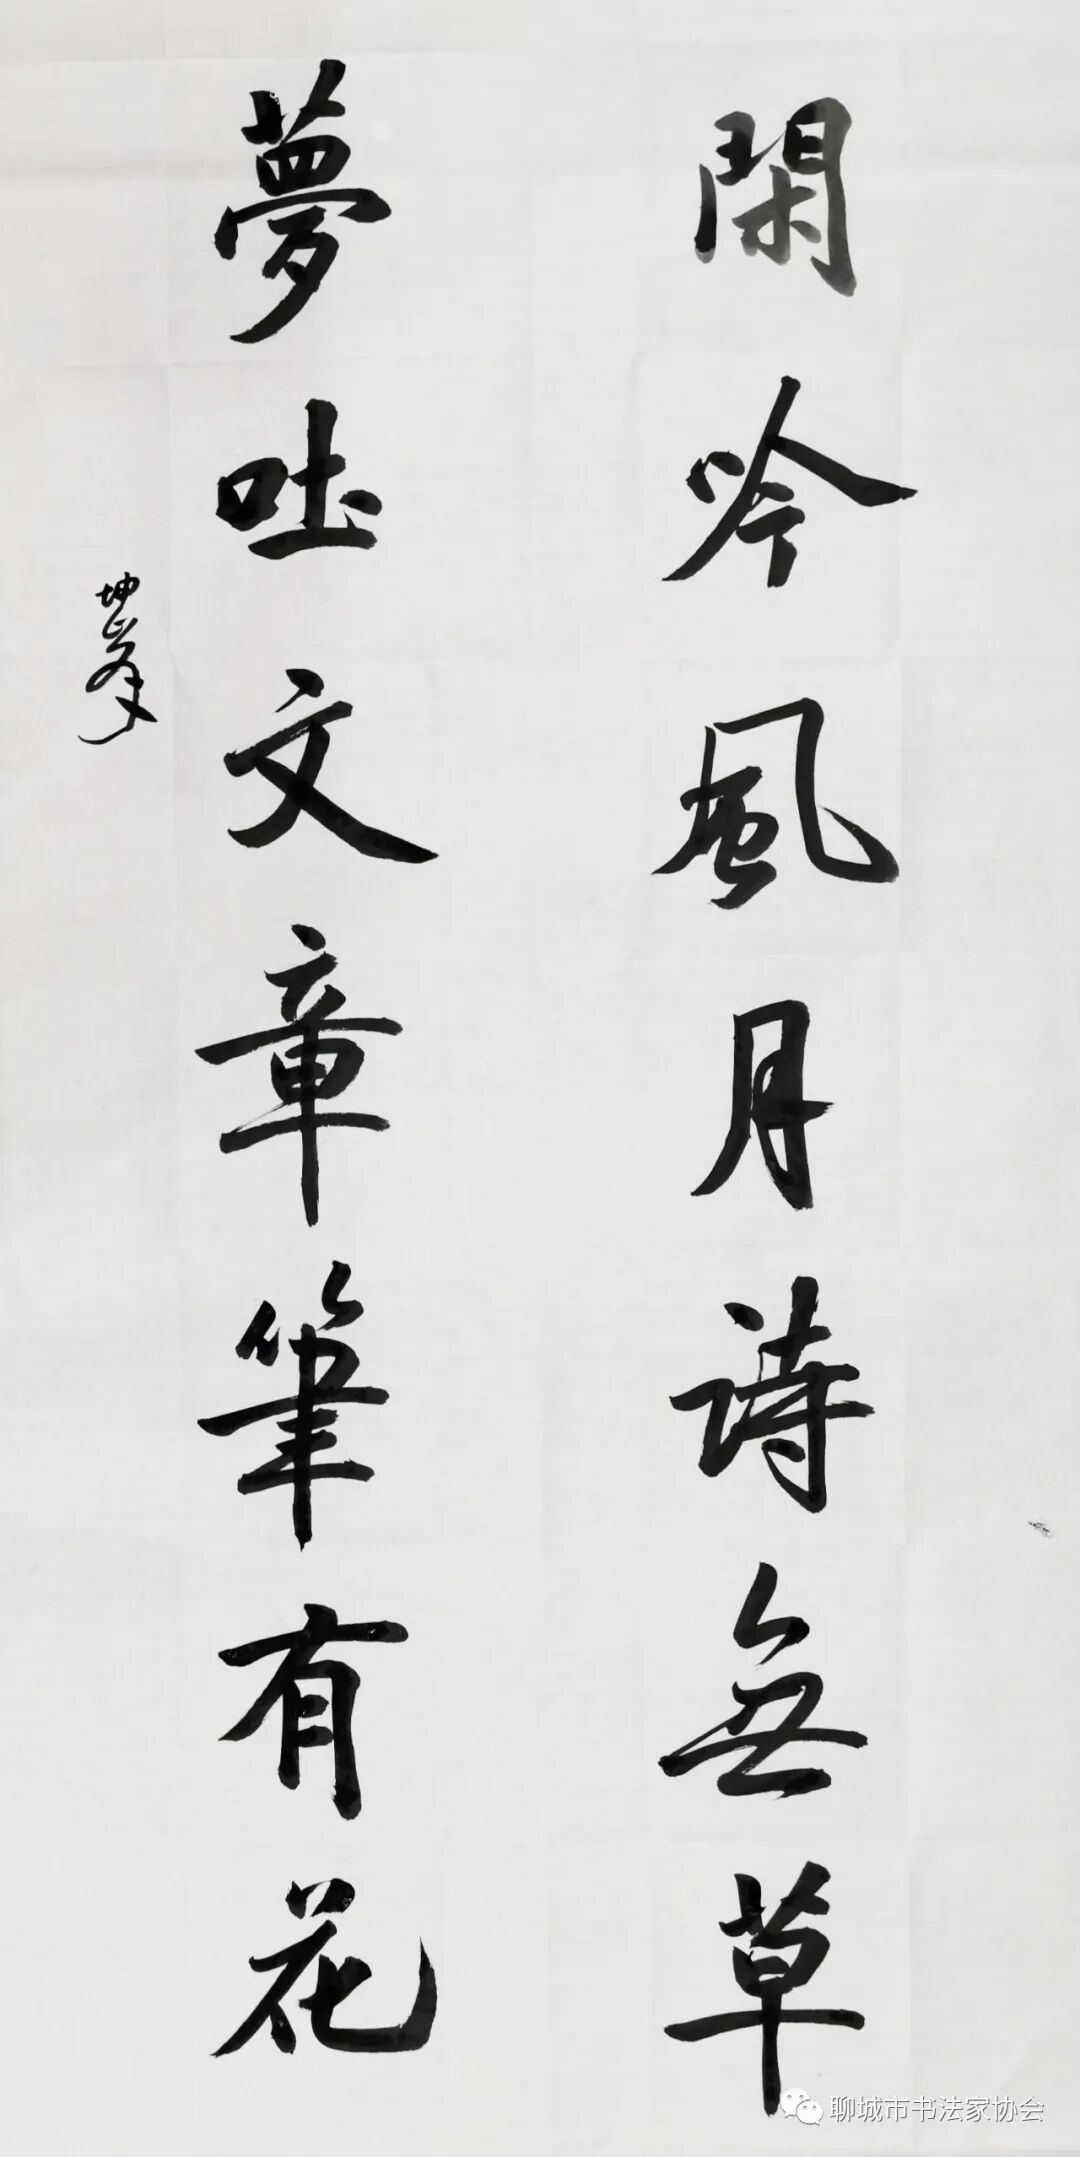 閑吟風月詩無草
夢吐文章筆有花
坤峯
聊城市书法家协会